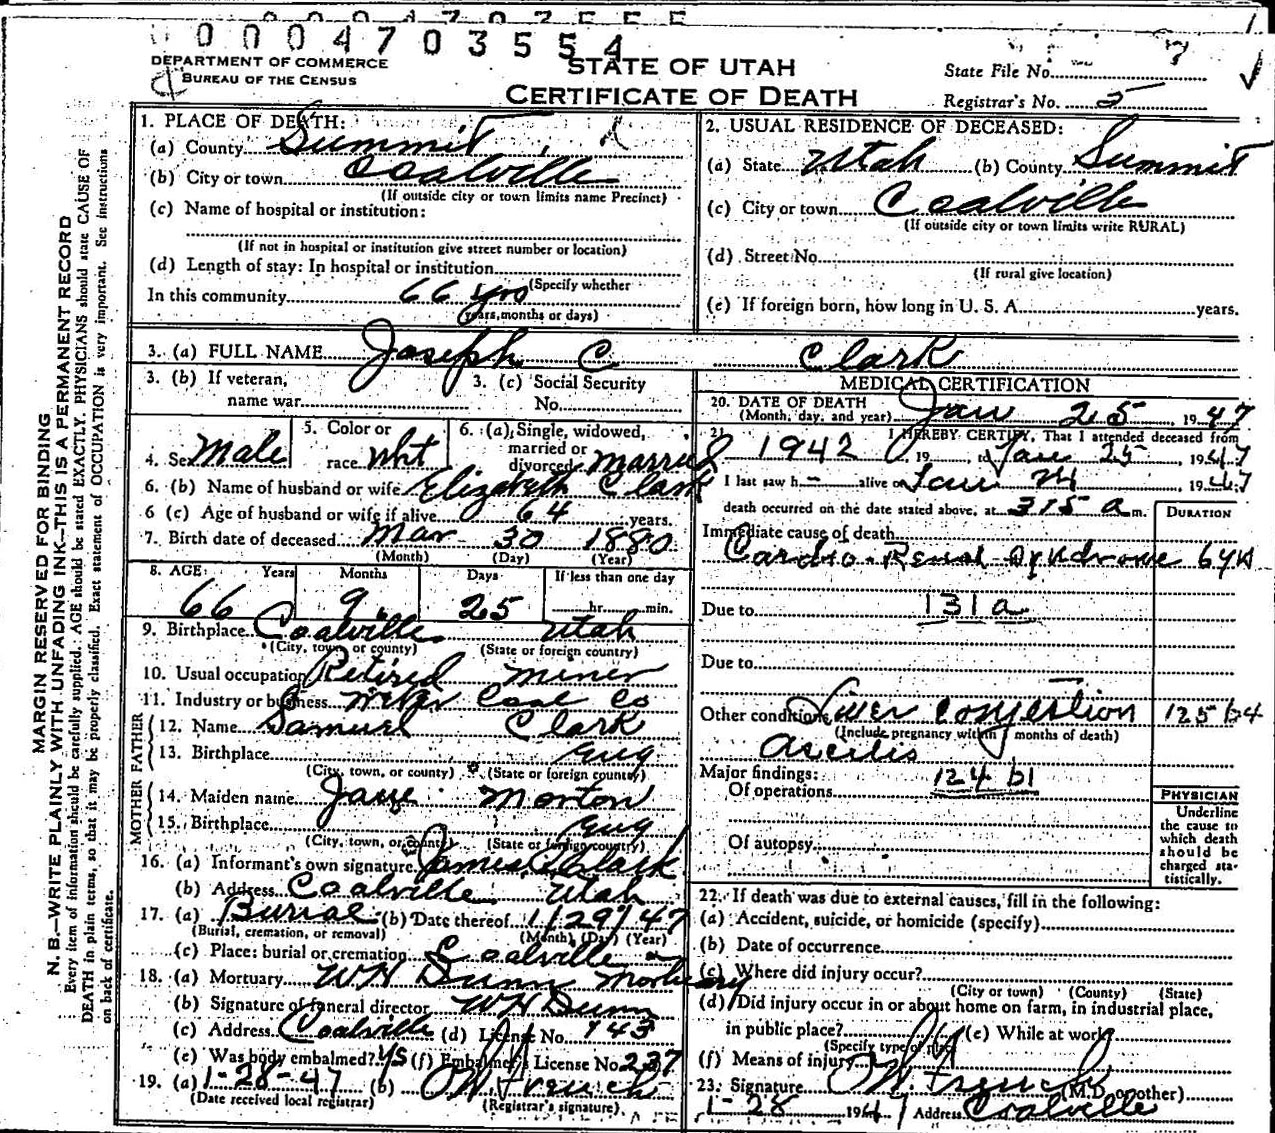 00004703554
DEPARTMENT OF COMMERCE
BUREAU OF THE CENSUS
STATE OF UTAH
CERTIFICATE OF DEATH
State File No. 7
Registrar's No. 5
MARGIN RESERVED FOR BINDING
N. B.—WRITE PLAINLY WITH UNFADING INK—THIS IS A PERMANENT RECORD
Every item of information should be carefully supplied. AGE should be stated EXACTLY. PHYSICIANS should state CAUSE OF
DEATH in plain terms, so that it may be properly classified. Exact statement of OCCUPATION is very important. See instructions
on back of certificate.
1. PLACE OF DEATH:
(a) County Summit
(b) City or town Coalville
(If outside city or town limits name Precinct)
(c) Name of hospital or institution:
(If not in hospital or institution give street number or location)
(d) Length of stay: In hospital or institution
(Specify whether
In this community 66 yrs
years, months or days)
2. USUAL RESIDENCE OF DECEASED:
(a) State Utah (b) County Summit
(c) City or town Coalville
(If outside city or town limits write RURAL)
(d) Street No.
(If rural give location)
(e) If foreign born, how long in U. S. A. years.
3. (a) FULL NAME Joseph C Clark
3. (b) If veteran,
name war
3. (c) Social Security
No.
4. Sex Male
5. Color or
race Wht
6. (a) Single, widowed,
married or
divorced Married
6. (b) Name of husband or wife Elizabeth Clark
6 (c) Age of husband or wife if alive 64 years.
7. Birth date of deceased Mar 30 1880
(Month) (Day) (Year)
8. AGE: Years Months Days If less than one day
66 9 25 hr. min.
9. Birthplace Coalville Utah
(City, town, or county) (State or foreign country)
10. Usual occupation Retired miner
11. Industry or business Weber Coal Co
FATHER
12. Name Samuel Clark
13. Birthplace Eng
(City, town, or county) (State or foreign country)
MOTHER
14. Maiden name Jane Morton
15. Birthplace Eng
(City, town, or county) (State or foreign country)
16. (a) Informant's own signature James Clark
(b) Address Coalville Utah
17. (a) Burial (b) Date thereof 1/29/47
(Burial, cremation, or removal) (Month) (Day) (Year)
(c) Place: burial or cremation Coalville
18. (a) Mortuary W H Dunn Mortuary
(b) Signature of funeral director W H Dunn
(c) Address Coalville (d) License No. 743
(e) Was body embalmed? ys (f) Embalmer's License No. 237
19. (a) 1-28-47 (b)
(Date received local registrar) (Registrar's signature)
MEDICAL CERTIFICATION
20. DATE OF DEATH
(Month, day, and year) Jan 25 1947
21. I HEREBY CERTIFY, That I attended deceased from
1942, 19, to Jan 25, 1947
I last saw h alive on Jan 24, 1947
death occurred on the date stated above, at 315 a m.
DURATION
Immediate cause of death
Cardio-Renal Syndrome 6 yr
Due to 131a
Due to
Other conditions Liver Congestion 125b4
(Include pregnancy within months of death)
Ascitis
Major findings: 124b1
Of operations
Of autopsy
PHYSICIAN
Underline
the cause to
which death
should be
charged sta-
tistically.
22. If death was due to external causes, fill in the following:
(a) Accident, suicide, or homicide (specify)
(b) Date of occurrence
(c) Where did injury occur?
(City or town) (County) (State)
(d) Did injury occur in or about home on farm, in industrial place,
in public place? (e) While at work
(Specify type of place)
(f) Means of injury
23. Signature (M.D. or other)
1-28 1947 Address Coalville